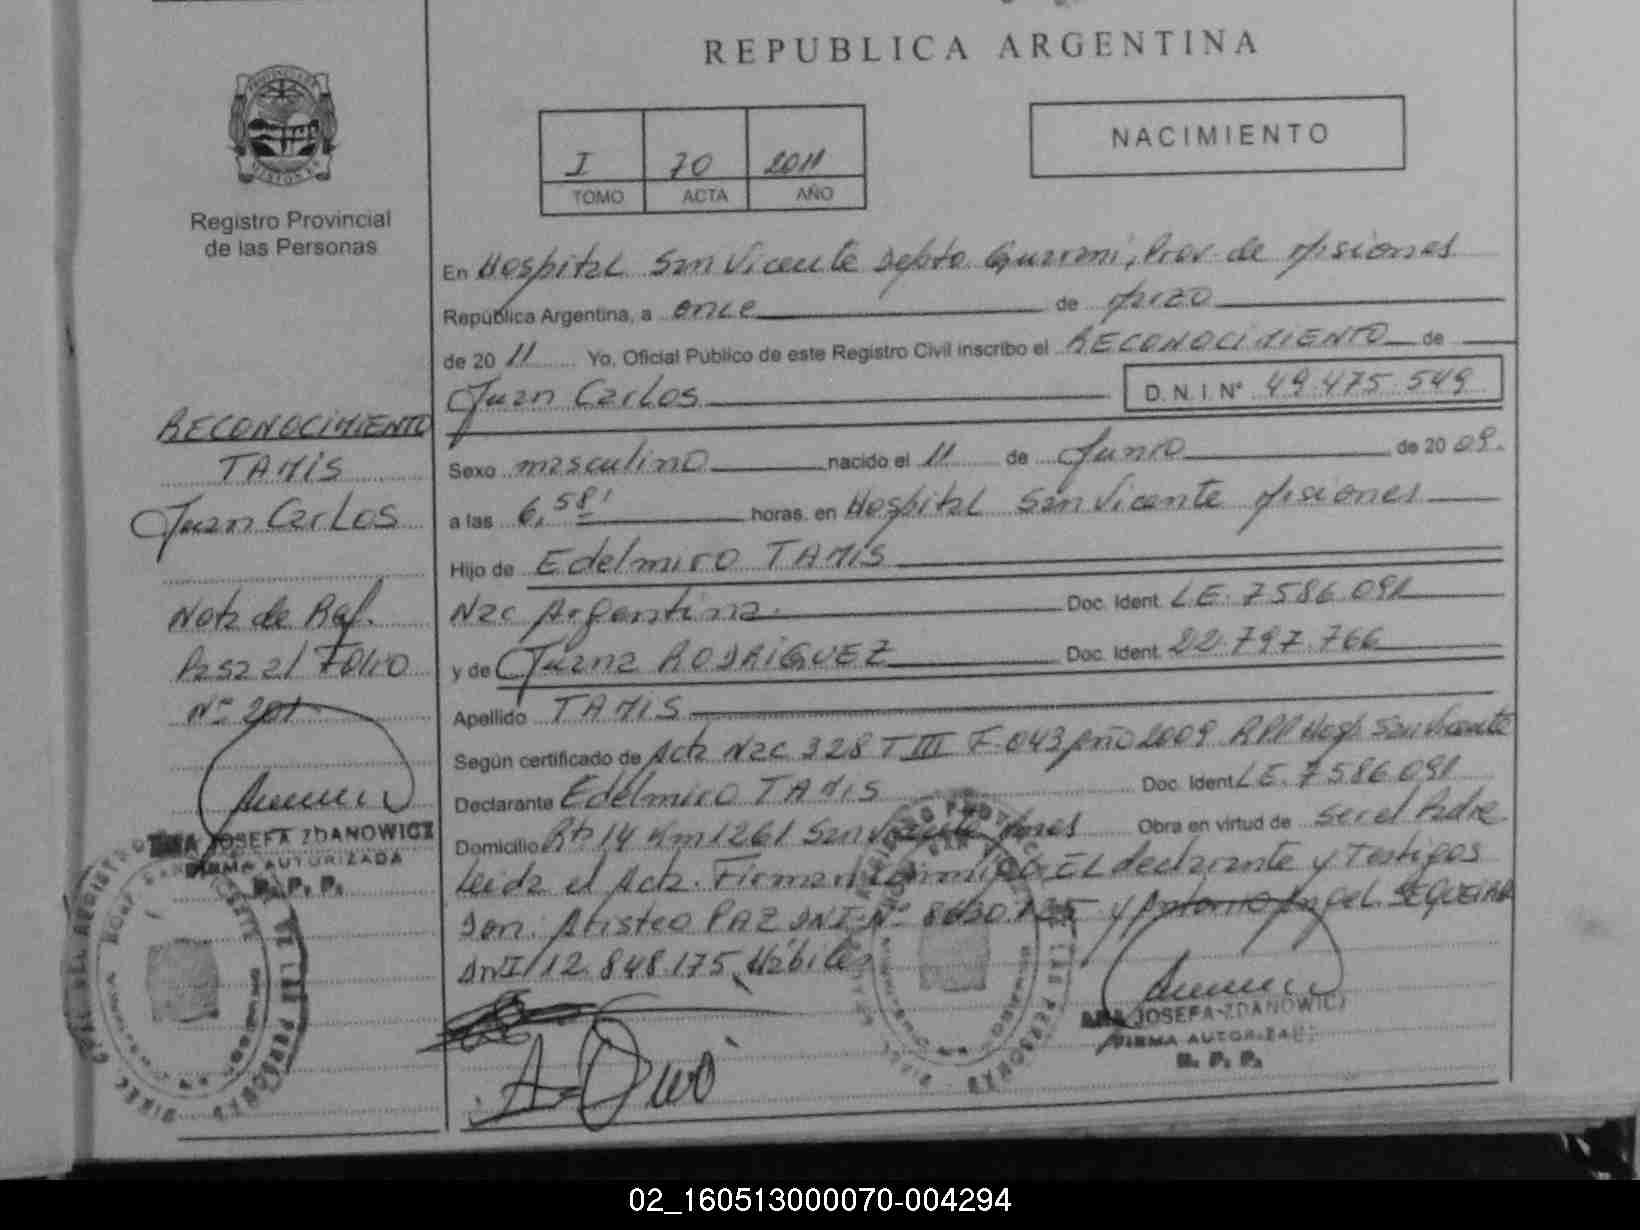 REPUBLICA ARGENTINA
I 70 2011
TOMO ACTA AÑO
NACIMIENTO
Registro Provincial
de las Personas
RECONOCIMIENTO
TAMIS
Juan Carlos
Nota de Ref.
Pasa al Folio
Nº 201
ANA JOSEFA ZDANOWICZ
FIRMA AUTORIZADA
R. P. P.
En Hospital San Vicente Depto Guarani, Prov. de Misiones
República Argentina, a once de Marzo
de 20 11 Yo, Oficial Público de este Registro Civil inscribo el RECONOCIMIENTO de
Juan Carlos D. N. I. Nº 49.475.549
Sexo masculino nacido el 11 de Junio de 20 09.
a las 6,58' horas. en Hospital San Vicente Misiones
Hijo de Edelmiro TAMIS
Nac Argentina. Doc. Ident. L.E. 7586.091
y de Juana RODRIGUEZ Doc. Ident. 22.797.766
Apellido TAMIS
Según certificado de Acta Nac 328 T III F. 043 Año 2009 RPP Hosp. San Vicente
Declarante Edelmiro TAMIS Doc. Ident L.E. 7586.091
Domicilio Rta 14 Km 1261 San Vicente Mnes Obra en virtud de ser el Padre
Leida el Acta. Firman conmigo El declarante y Testigos
Don: Aristeo PAZ DNI Nº y Antonio Angel SEQUEIRA
DNI 12.848.175 Hábiles
ANA JOSEFA ZDANOWICZ
FIRMA AUTORIZADA
R. P. P.
02_160513000070-004294